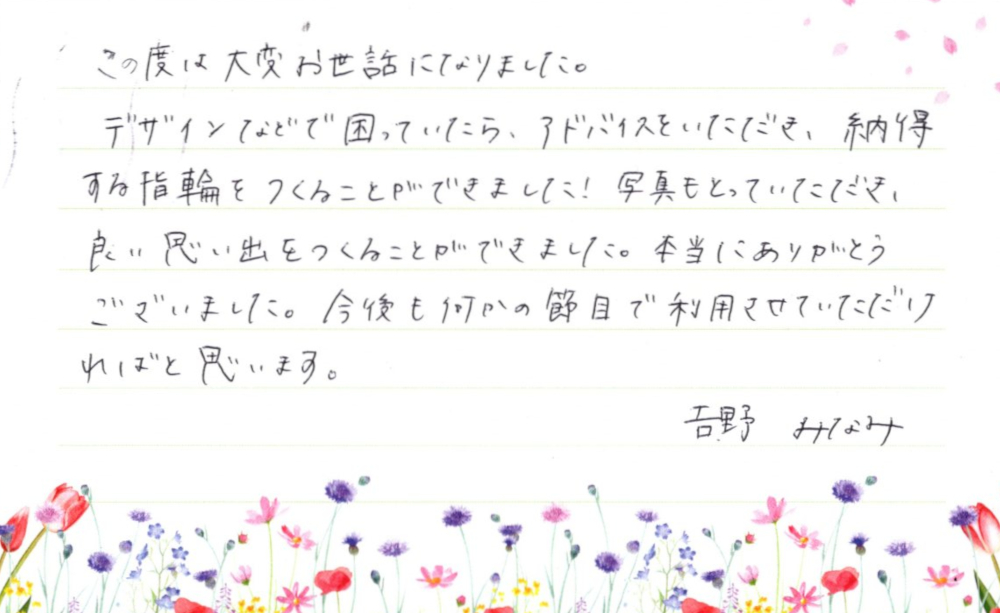 この度は大変お世話になりました。
デザインなどで困っていたら、アドバイスをいただき、納得
する指輪をつくることができました！写真もとっていただき、
良い思い出をつくることができました。本当にありがとう
ございました。今後も何かの節目で利用させていただけ
ればと思います。
吉野 みなみ